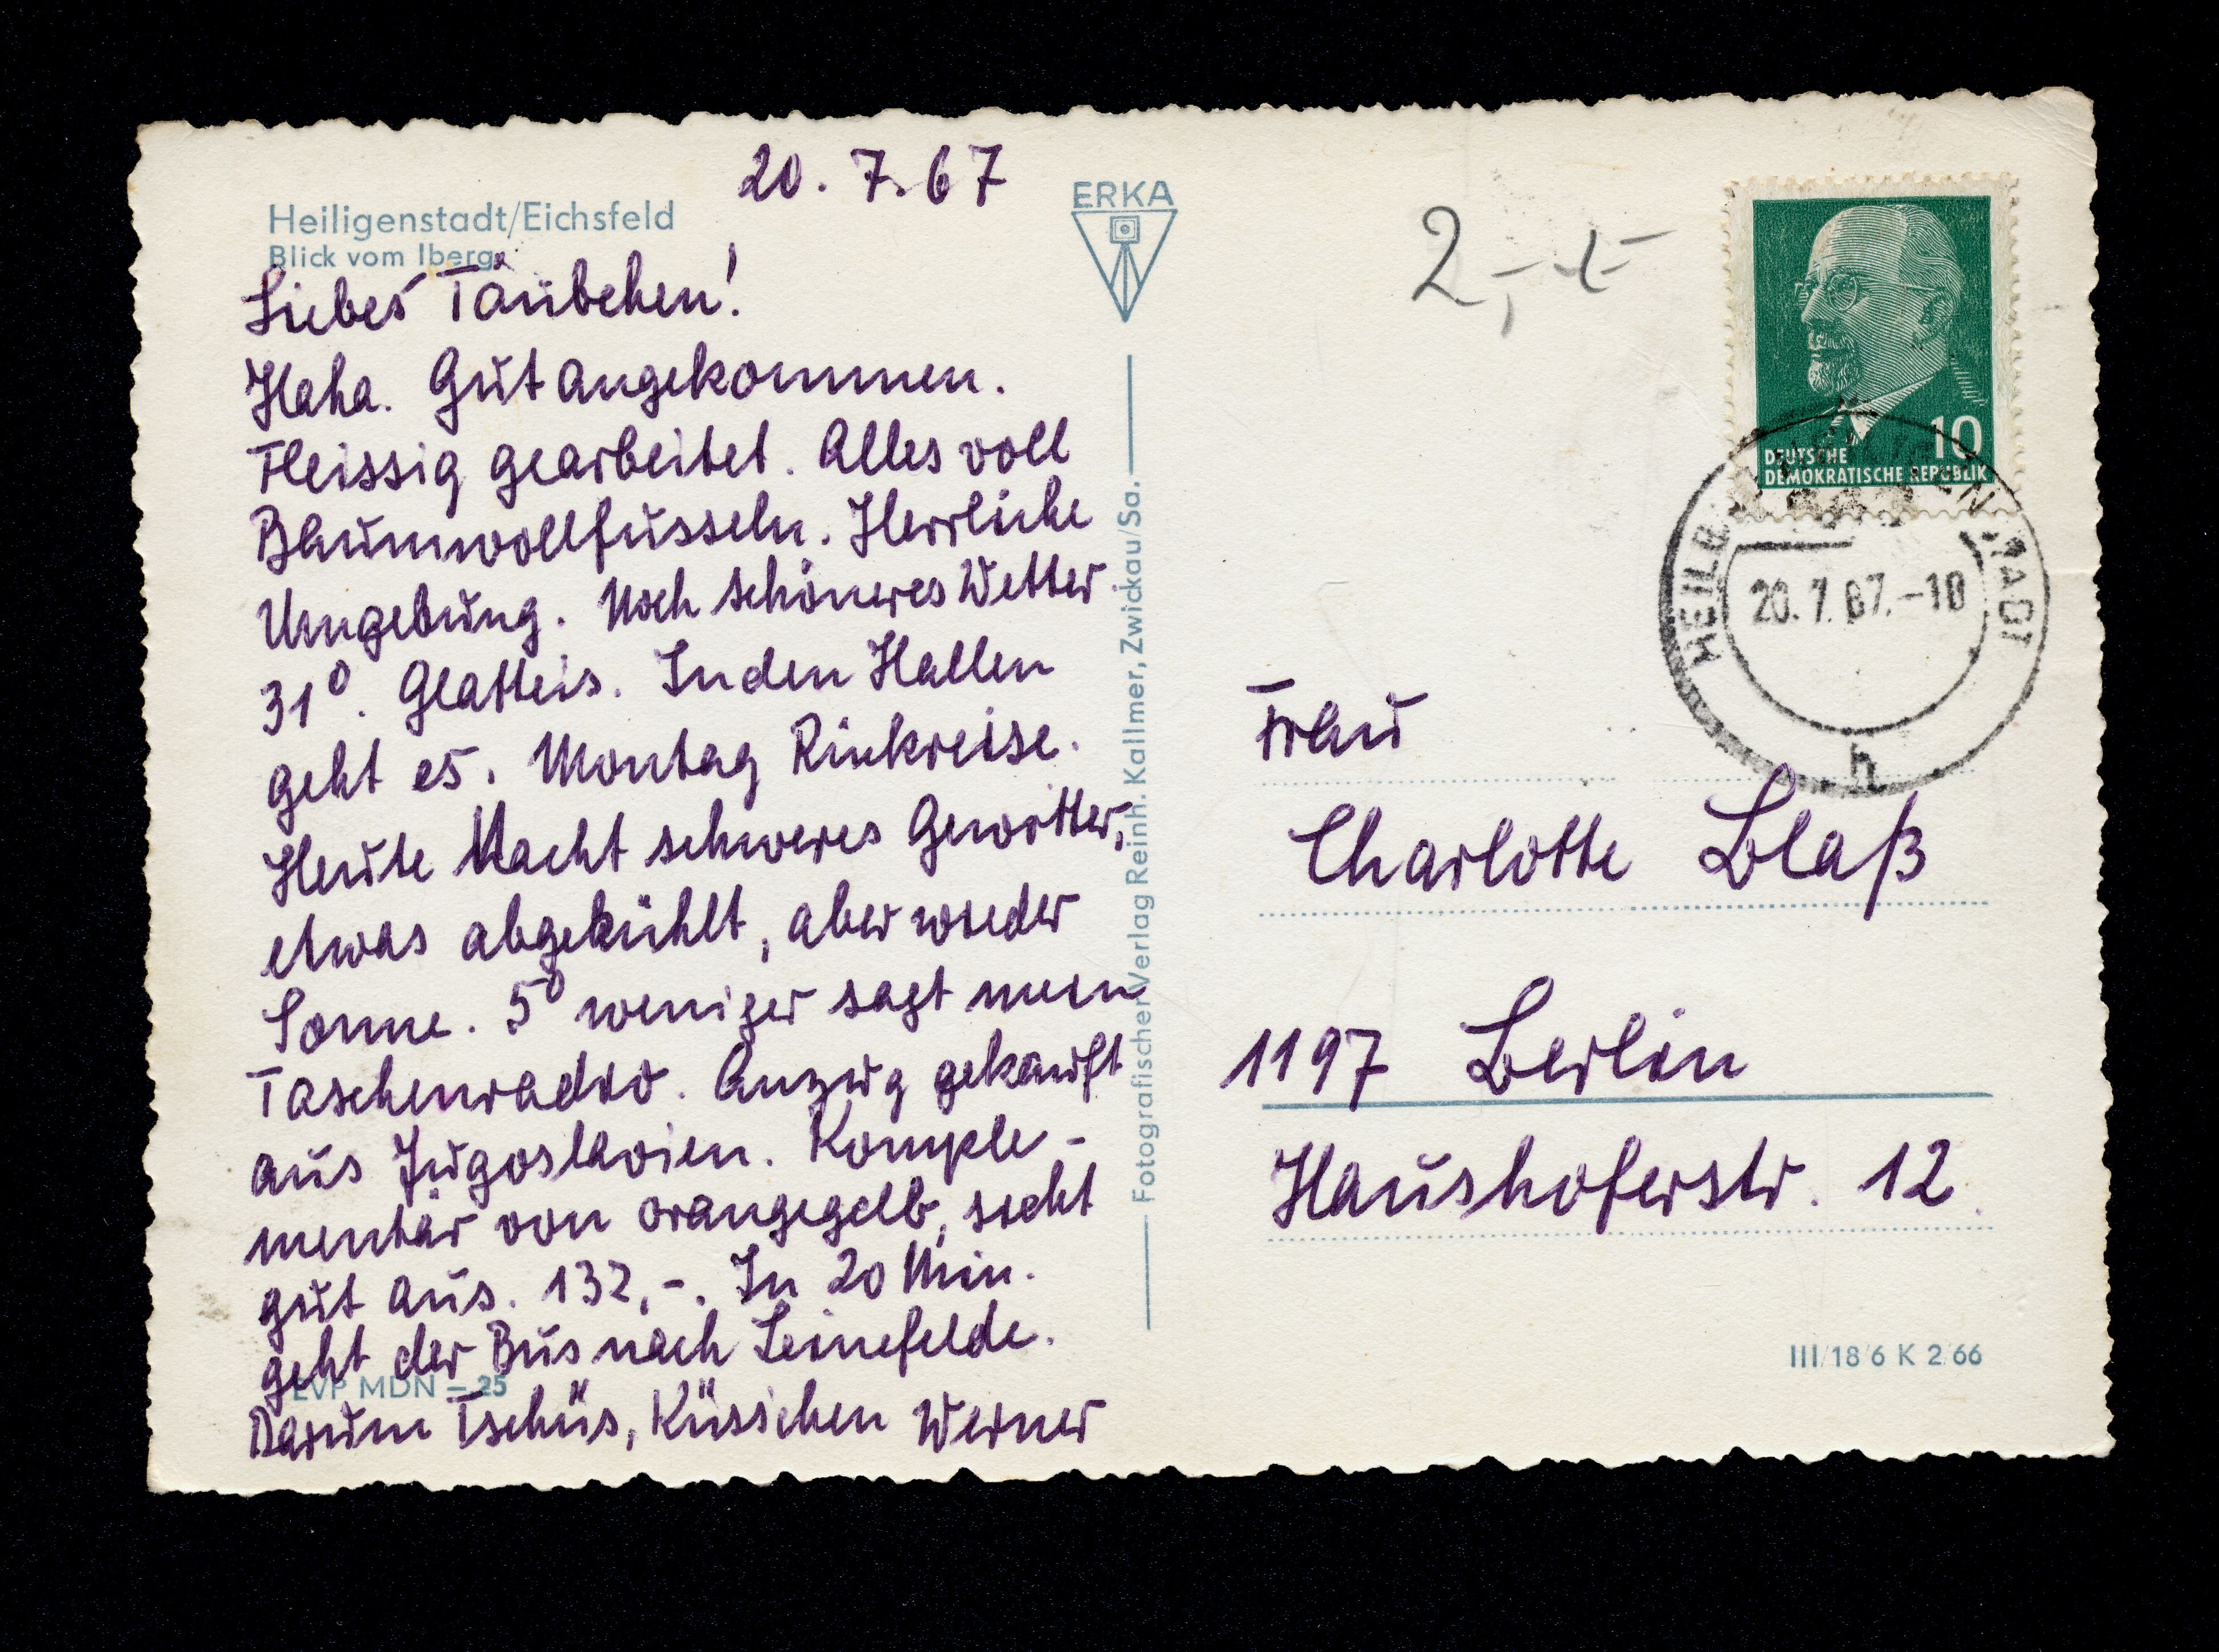 20. 7. 67
Heiligenstadt/Eichsfeld
Blick vom Iberg
Liebes Täubchen!
Haha. Gut angekommen.
Fleissig gearbeitet. Alles voll
Baumwollfusseln. Herrliche
Umgebung. Noch schöneres Wetter
31°. Glatteis. In den Hallen
geht es. Montag Rückreise.
Heute Nacht schweres Gewitter,
etwas abgekühlt, aber wieder
Sonne. 5° weniger sagt mein
Taschenradio. Anzug gekauft
aus Jugoslavien. Komple-
mentär von orangegelb, sieht
gut aus. 132,-. In 20 Min.
geht der Bus nach Leinefelde.
EVP MDN –25
Darum Tschüs, Küsschen Werner
ERKA
Fotografischer Verlag Reinh. Kallmer, Zwickau/Sa.
2,-
10
DEUTSCHE
DEMOKRATISCHE REPUBLIK
20.7.67.-10
h
Frau
Charlotte Blaß
1197 Berlin
Haushoferstr. 12
III/18/6 K 2/66